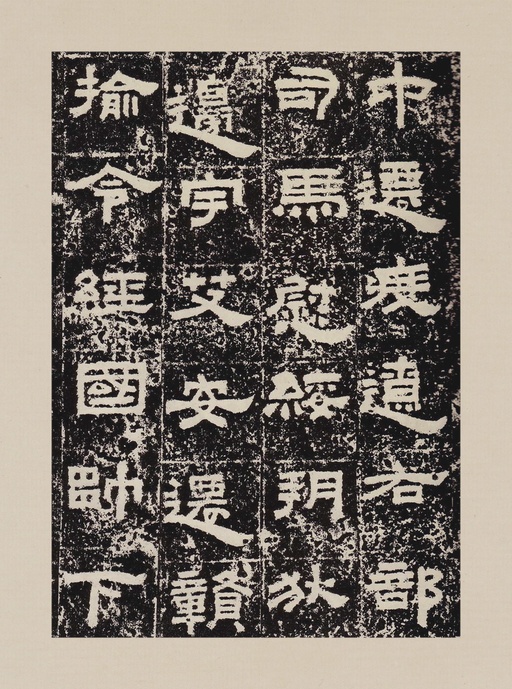 中遷度遼右部
司馬慰綏朔狄
邊宇艾安還贛
揄令經國帥下